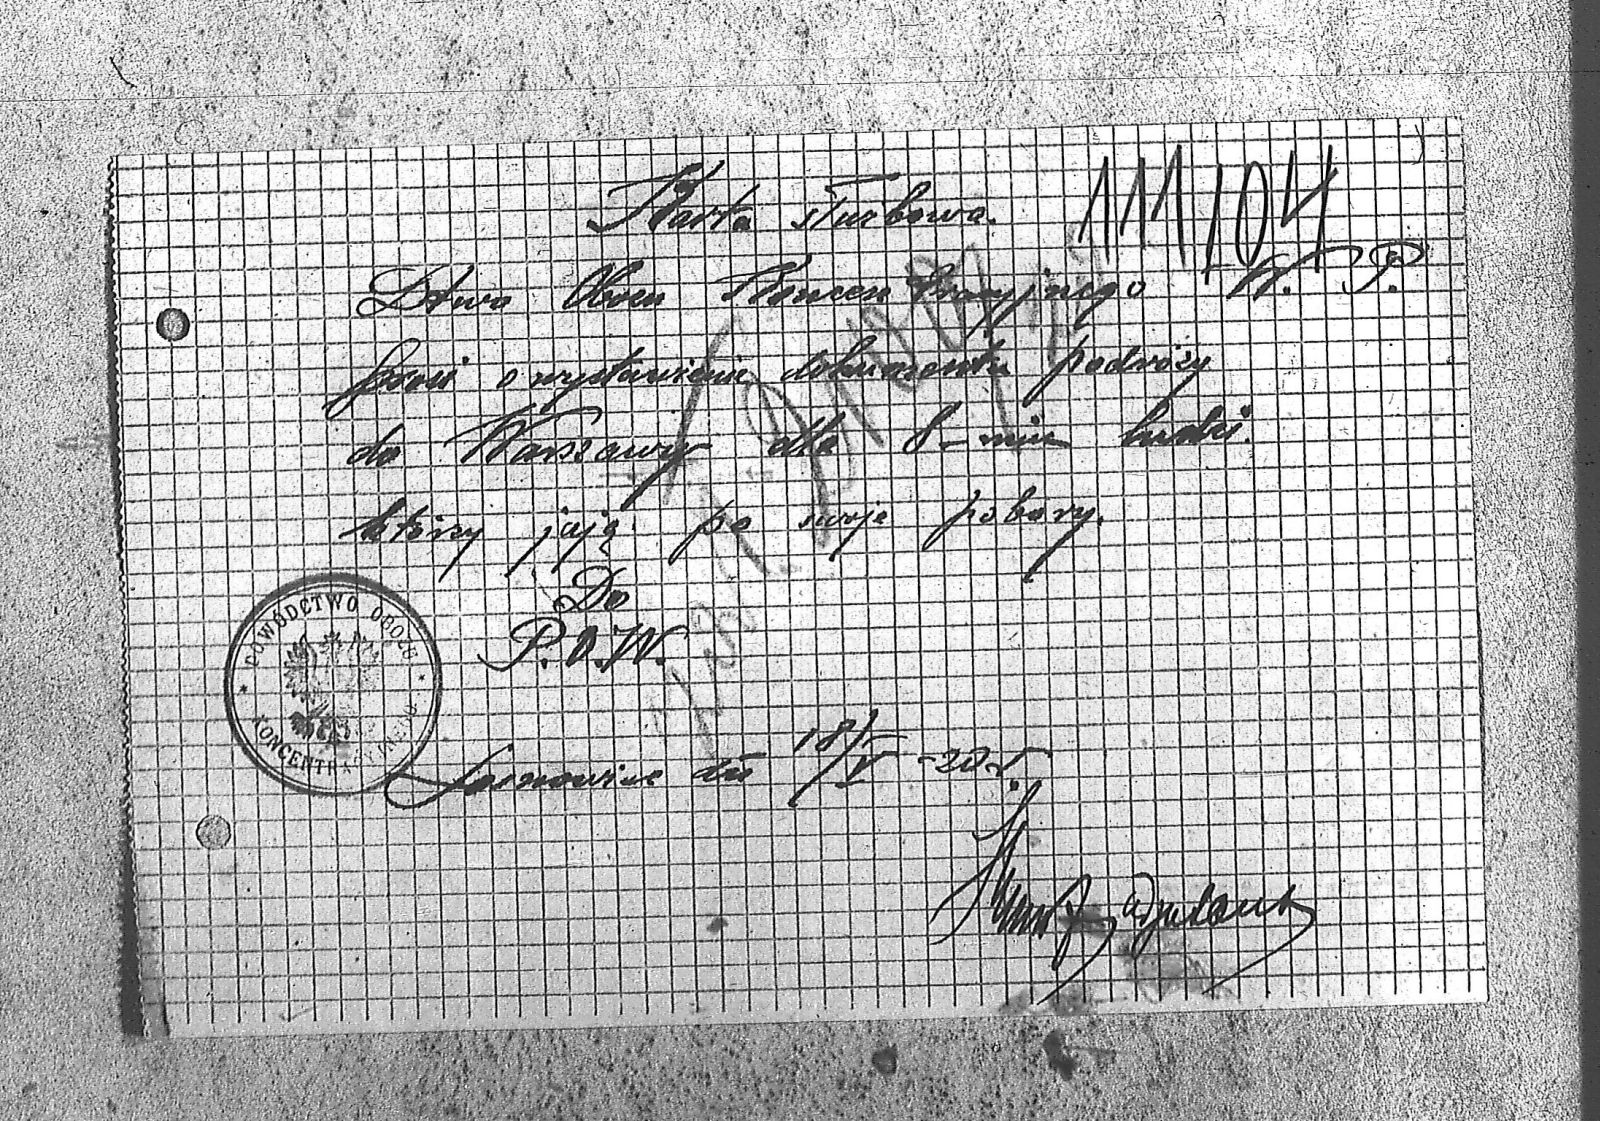 Karta służbowa.
111/104
Dztwo Obozu Koncentracyjnego W. P.
prosi o wystawienie dokumentu podróży
do Warszawy dla 8-miu ludzi.
którzy jają po swoje pobory.
Do
P.O.W.
DOWÓDCTWO OBOZU
KONCENTRACYJNEGO
Sosnowiec dn 18/V -20 r.
adjutant